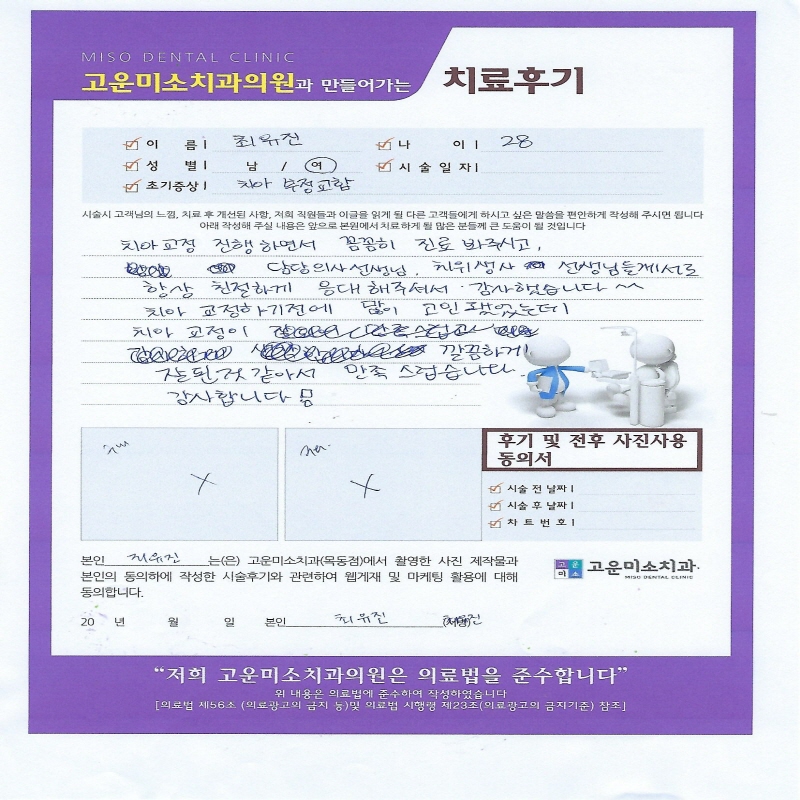 MISO DENTAL CLINIC
고운미소치과의원과 만들어가는 치료후기
이 름 최유진 나 이 28
성 별 남 / 여 시 술 일 자
초기증상 치아 부정교합
시술시 고객님의 느낌, 치료 후 개선된 사항, 저희 직원들과 이글을 읽게 될 다른 고객들에게 하시고 싶은 말씀을 편안하게 작성해 주시면 됩니다
아래 작성해 주실 내용은 앞으로 본원에서 치료하게 될 많은 분들께 큰 도움이 될 것입니다
치아교정 진행하면서 꼼꼼히 진료 봐주시고,
담당의사선생님, 치위생사 선생님들께서도
항상 친절하게 응대해주셔서 감사했습니다 ^^
치아 교정하기전에 많이 고민했었는데
치아 교정이
깔끔하게
잘된것 같아서 만족스럽습니다.
감사합니다
후기 및 전후 사진사용
동의서
시술 전 날짜
시술 후 날짜
차 트 번 호
본인 최유진 는(은) 고운미소치과(목동점)에서 촬영한 사진 제작물과
본인의 동의하에 작성한 시술후기와 관련하여 웹게재 및 마케팅 활용에 대해
동의합니다.
고운미소
고운미소치과
MISO DENTAL CLINIC
20 년 월 일 본인 최유진 (서명) 최유진
“저희 고운미소치과의원은 의료법을 준수합니다”
위 내용은 의료법에 준수하여 작성하였습니다
[의료법 제56조 (의료광고의 금지 등)및 의료법 시행령 제23조(의료광고의 금지기준) 참조]